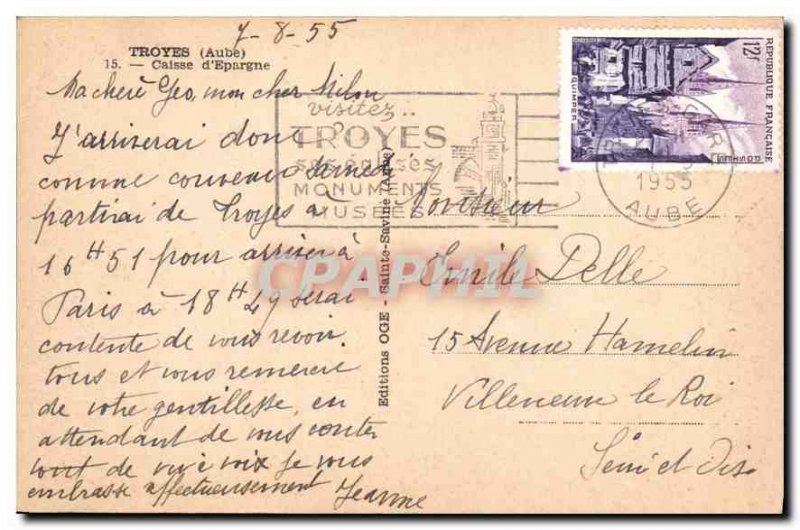 7-8-55
TROYES (Aube)
15. — Caisse d'Epargne
Ma chère Geo, mon cher Milou
J'arriverai donc
comme convenu samedi
partirai de Troyes à
16H51 pour arriver à
Paris à 18H49 serai
contente de vous revoir
tous et vous remercie
de votre gentillesse, en
attendant de vous conter
tout de vive voix je vous
embrasse affectueusement Jeanne
Editions OGE - Sainte-Savine (Aube)
visitez..
TROYES
ses églises
MONUMENTS
MUSÉES
REPUBLIQUE FRANÇAISE
12F
QUIMPER
1955
AUBE
Monsieur
Emile Delle
15 Avenue Hamelin
Villeneuve le Roi
Seine et Oise
CPAPHIL